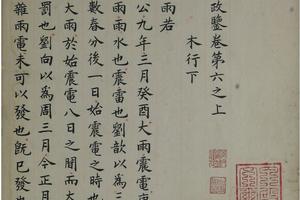 政鑒卷第六之上
木行下
雨若
公九年三月癸酉大雨震電庚
雨雨水也震雷也劉歆以為三
數春分後一日始震電之時也
大雨於始震電八日之間而大
罰也劉向以為周三月今正月
雜雨電未可以發也既已發也